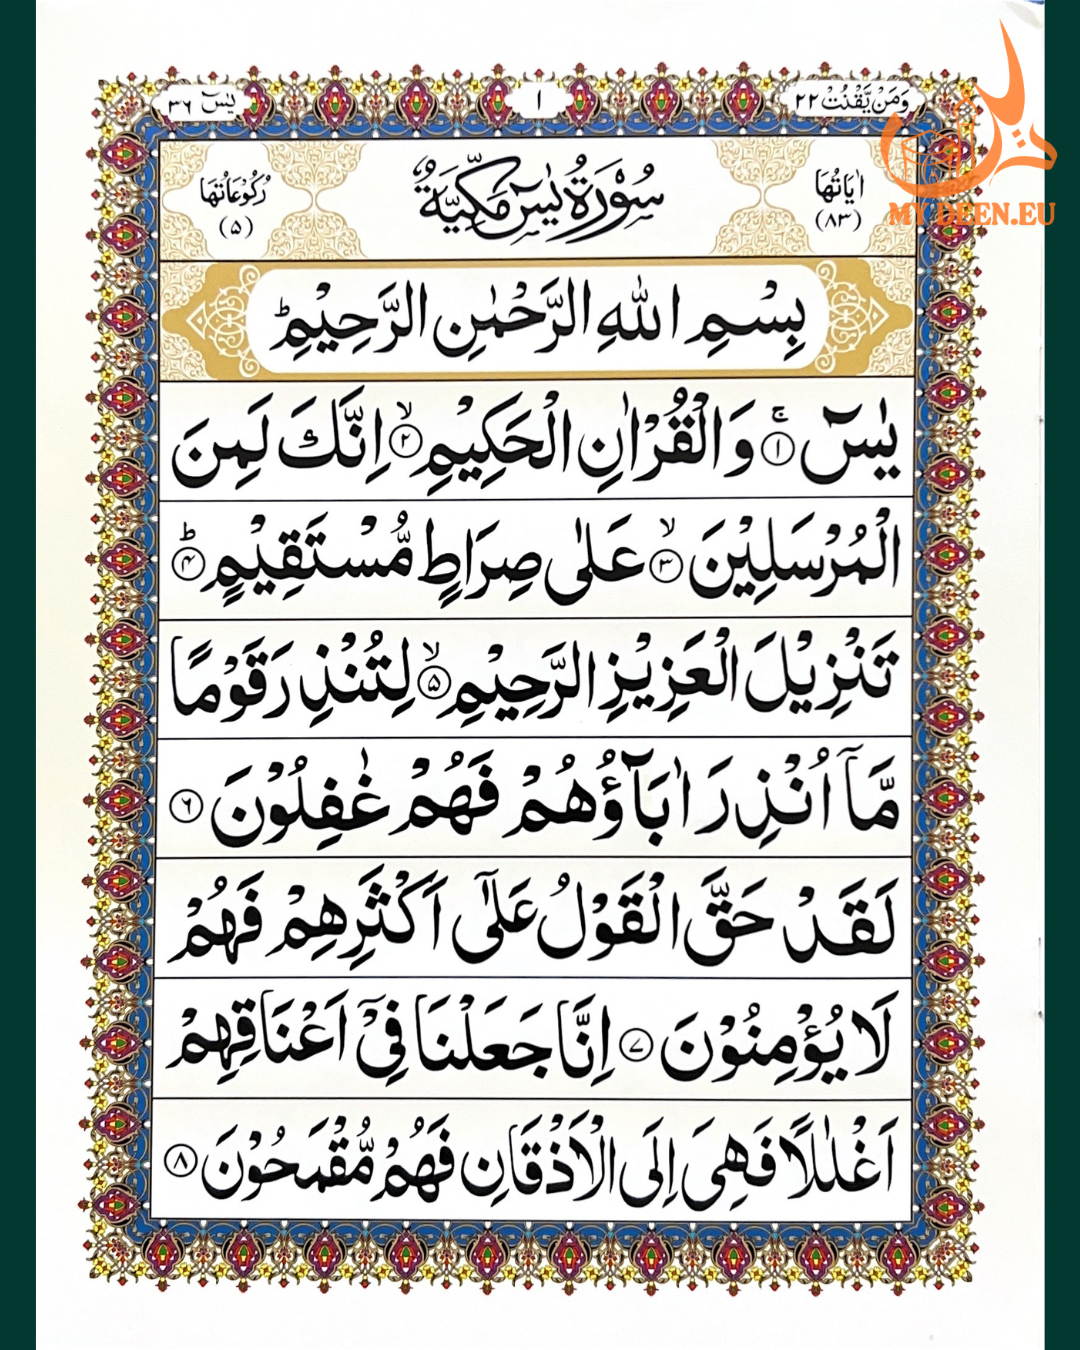 وَمَنْ يَّقْنُتْ ٢٢
١
يٰسٓ ٣٦
اٰيَاتُهَا
(٨٣)
سُوْرَةُ يٰسٓ مَكِّيَّةٌ
رُكُوْعَاتُهَا
(٥)
MY DEEN.EU
بِسْمِ اللهِ الرَّحْمٰنِ الرَّحِيْمِ ؕ
يٰسٓ ۚ ١ وَالْقُرْاٰنِ الْحَكِيْمِ ۙ ٢ اِنَّكَ لَمِنَ
الْمُرْسَلِيْنَ ۙ ٣ عَلٰى صِرَاطٍ مُّسْتَقِيْمٍ ؕ ٤
تَنْزِيْلَ الْعَزِيْزِ الرَّحِيْمِ ۙ ٥ لِتُنْذِرَ قَوْمًا
مَّآ اُنْذِرَ اٰبَآؤُهُمْ فَهُمْ غٰفِلُوْنَ ٦
لَقَدْ حَقَّ الْقَوْلُ عَلٰٓى اَكْثَرِهِمْ فَهُمْ
لَا يُؤْمِنُوْنَ ٧ اِنَّا جَعَلْنَا فِيْٓ اَعْنَاقِهِمْ
اَغْلٰلًا فَهِىَ اِلَى الْاَذْقَانِ فَهُمْ مُّقْمَحُوْنَ ٨